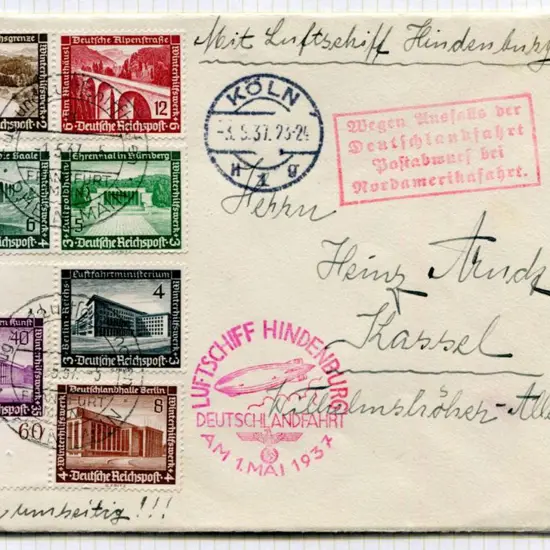 Mit Luftschiff Hindenburg
KÖLN
-3.5.37.23-24
1 g
Wegen Ausfalls der
Deutschlandfahrt
Postabwurf bei
Nordamerikafahrt.
Herrn
Heinz Arndt
Kassel
Wilhelmshöher-Alle
LUFTSCHIFF HINDENBURG
DEUTSCHLANDFAHRT
AM 1. MAI 1937
grenze
Winterhilfswerk
2
Deutsche Reichspost
Deutsche Alpenstraße
12
6 Deutsche Reichspost 6
Winterhilfswerk
Saale
6
4
Ehrenmal in Nürnberg
Luitpoldhain
5
3 Deutsche Reichspost 3
Winterhilfswerk
Luftfahrtministerium
4
3 Berlin-Reichs
Deutsche Reichspost
Winterhilfswerk
Kunst
40
35
Winterhilfswerk
60
Deutschlandhalle Berlin
8
4 Deutsches Reich 4
Winterhilfswerk
umseitig!!!